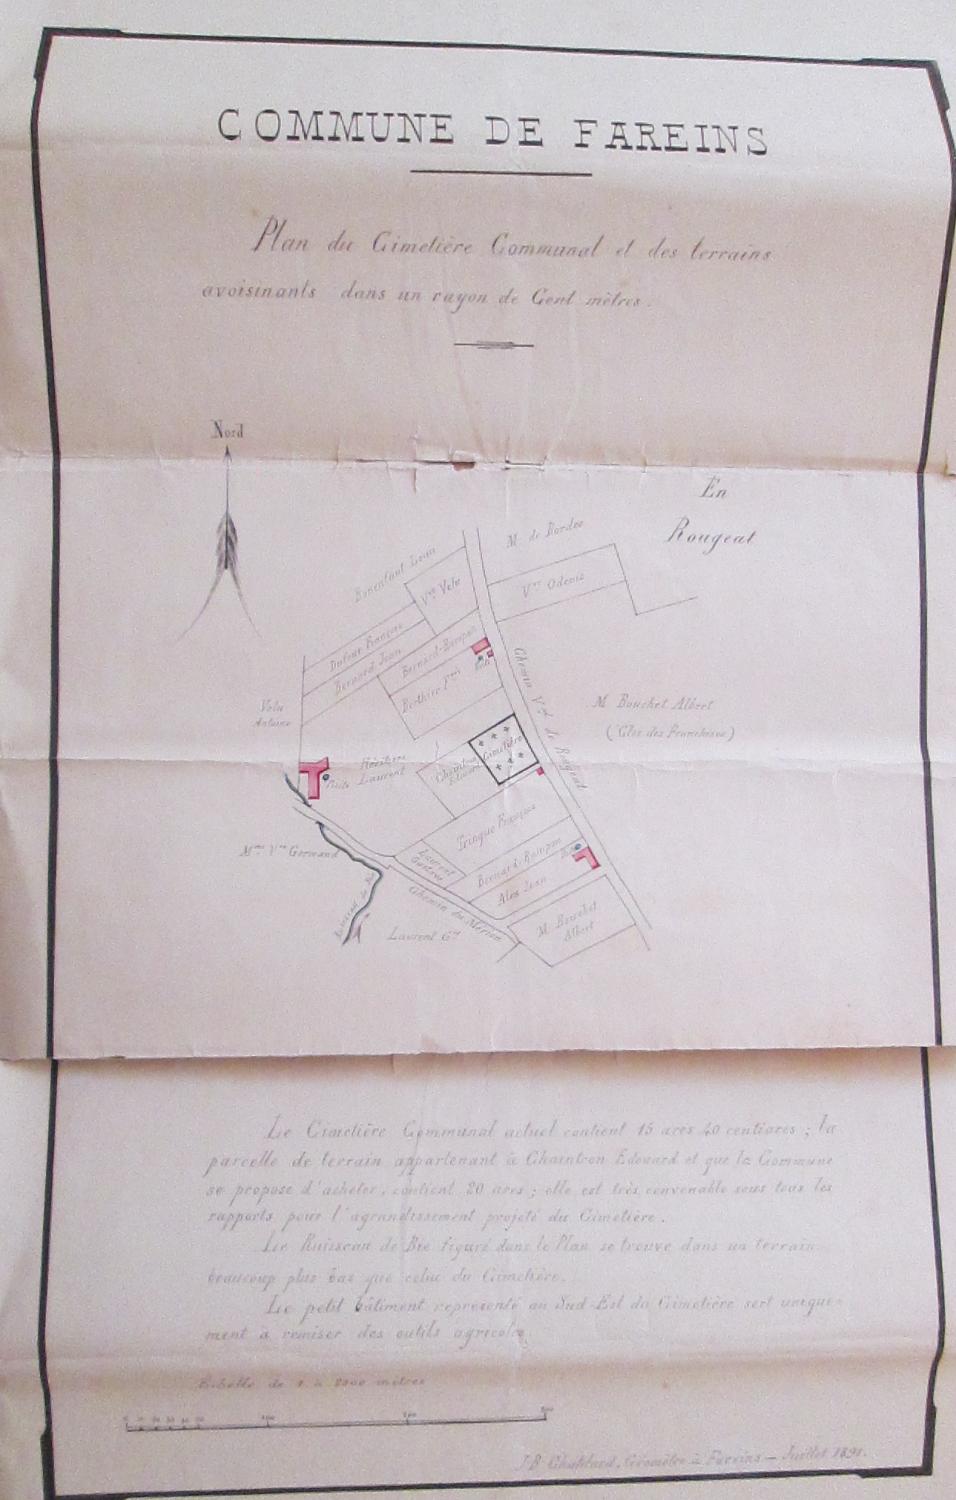 COMMUNE DE FAREINS
Plan du Cimetière Communal et des terrains
avoisinants dans un rayon de Cent mètres.
Nord
En
Rougeat
M. de Bordes
Bonenfant Louis
Vve Velu
Vve Odenis
Dufour François
Bernard Jean
Bernard-Rampon
Berthire
Chemin Val de Rougeat
Velu
Antoine
M. Bouchet Albert
(Clos des Franchises)
Cimetière
Chaintron
Edouard
Héritiers
Laurent
Puits
Tringue François
Mme Vve Germand
Laurent
Bernard-Rampon
Puits
Alex Jean
Chemin du
M. Bouchet
Albert
Ruisseau de Bie
Laurent
Le Cimetière Communal actuel contient 15 ares 40 centiares ; la
parcelle de terrain appartenant à Chaintron Edouard et que la Commune
se propose d'acheter, contient 20 ares ; elle est très convenable sous tous les
rapports pour l'agrandissement projeté du Cimetière.
Le Ruisseau de Bie figuré dans le Plan se trouve dans un terrain
beaucoup plus bas que celui du Cimetière.
Le petit bâtiment représenté au Sud-Est du Cimetière sert unique-
ment à remiser des outils agricoles.
Echelle de 1 à 2000 mètres
J-B Chatelard, Géomètre à Fareins — Juillet 1891.